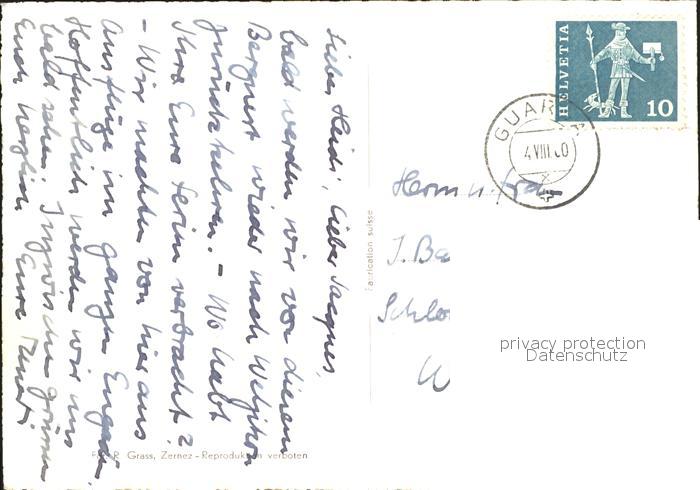 Liebe Heidi, lieber Jacques,
bald werden wir von diesem
Bergnest wieder nach Welsikon
zurückkehren. – Wo habt
Ihr Eure Ferien verbracht?
– Wir machten von hier aus
Ausflüge im ganzen Engadin.
Hoffentlich werden wir uns
bald sehen. Inzwischen grüssen
Euch herzlich Eure
HELVETIA
10
GUARDA
4.VIII.60
Herrn u. Frau
J. Ba
Schlo
W
privacy protection
Datenschutz
Fabrication suisse
R. Grass, Zernez - Reproduktion verboten